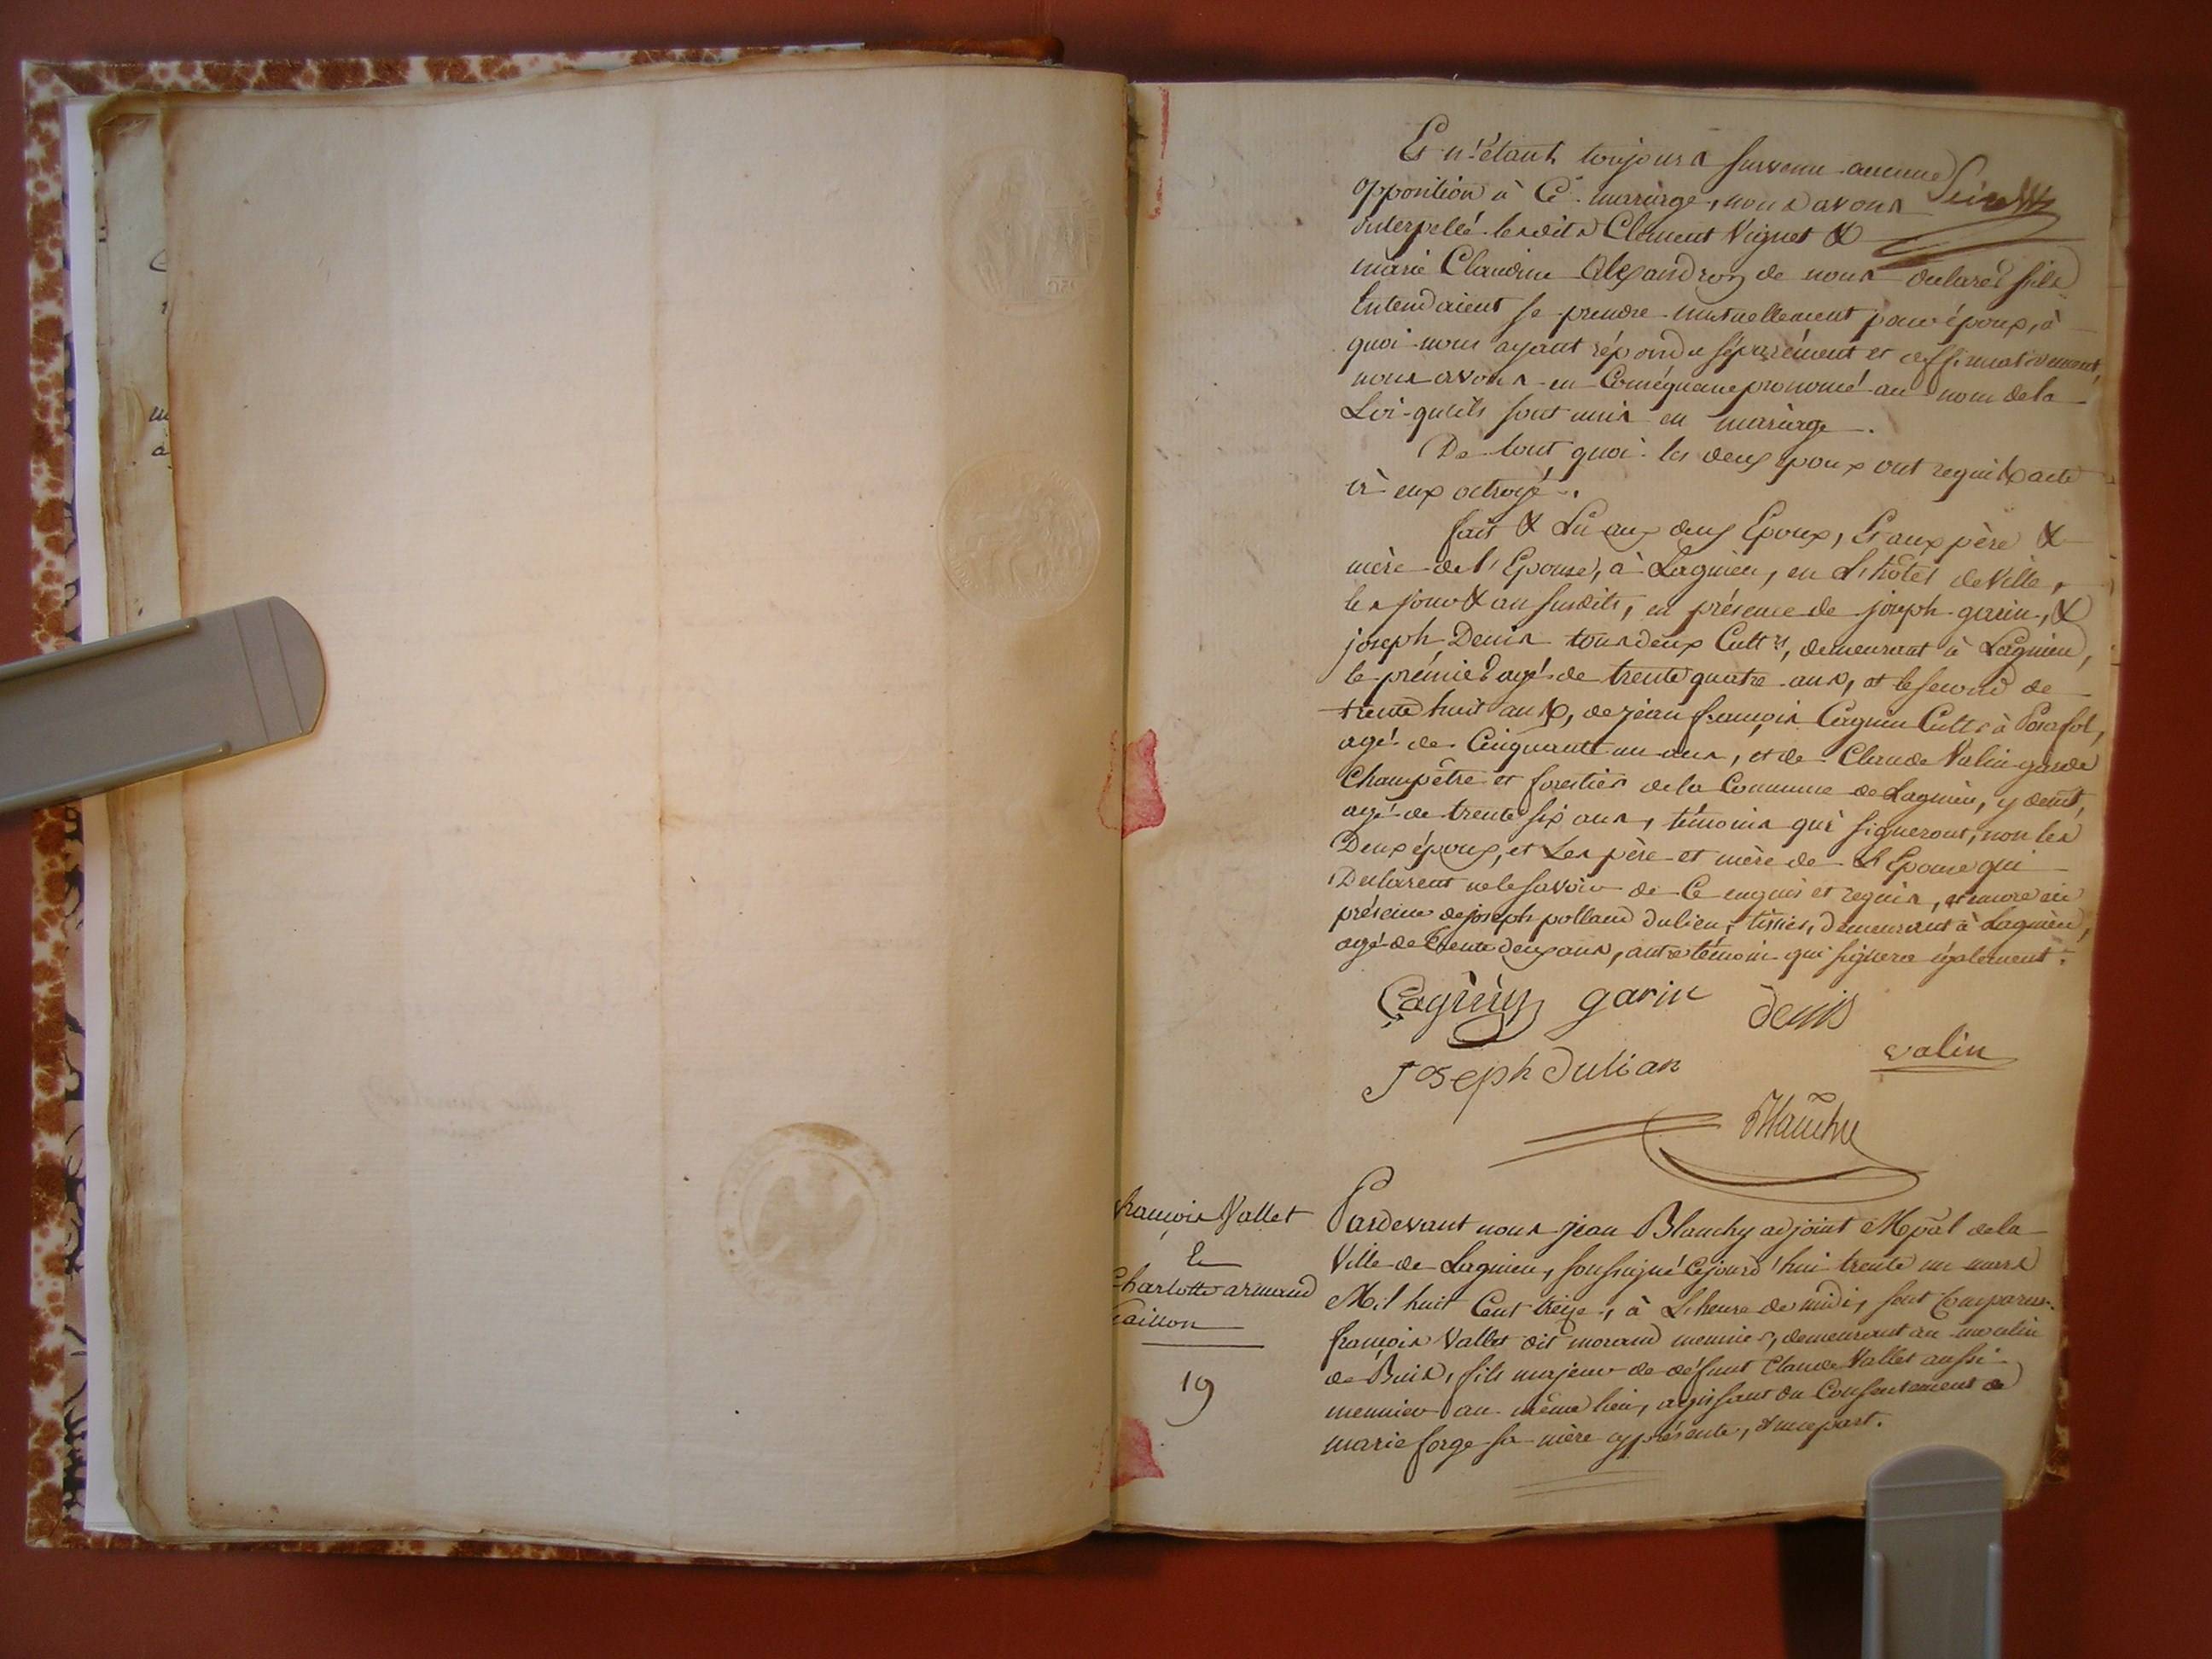 Et n'étant toujours survenu aucune
opposition à Ce mariage, nous avons
interpellé lesdits Clement Vignet &
marie Claudine Alexandron de nous declarer sils
Entendaient se prendre mutuellement pour époux, à
quoi nous ayant répondu séparément et affirmativement,
nous avons en Conséquence prononcé au nom de la
Loi qu'ils sont unis en mariage.
De tout quoi les deux époux ont requis acte
à eux octroyé.
fait & Lu aux deux Epoux, Et aux père &
mère de l'Epouse, à Lagnieu, en L'hôtel de Ville,
les jour & an susdits, en présence de joseph garin, &
joseph Denis tous deux Cultrs, demeurant à Lagnieu,
le prémier agé de trente quatre ans, et le second de
trente huit ans, de jean françois Cagnin Cultr à Posafol,
agé de Cinquante un ans, et de Claude Valin garde
Champêtre et forestier de la Commune de Lagnieu, y demt,
agé de trente six ans, témoins qui signeront, non les
Deux époux, et Les père et mère de L'Epouse qui
Declarent ne le savoir de Ce enquis et requis, et encore en
présence de joseph polland dulien, tissier, demeurant à Lagnieu,
agé de trente deux ans, autre témoin qui signera également.
garin denis
Joseph dulian valin
Blanchy
françois Vallet
&
Charlotte armand
Caillon
19
Pardevant nous jean Blanchy adjoint Mpal de la
Ville de Lagnieu, soussigné Cejourd'hui trente un mars
Mil huit Cent treize, à L'heure de midi, sont Comparus
françois Vallet dit morand meunier, demeurant au moulin
de Buis, fils majeur de défunt Claude Vallet aussi
meunier au même lieu, agissant du Consentement de
marie forge sa mère cy présente, d'une part.